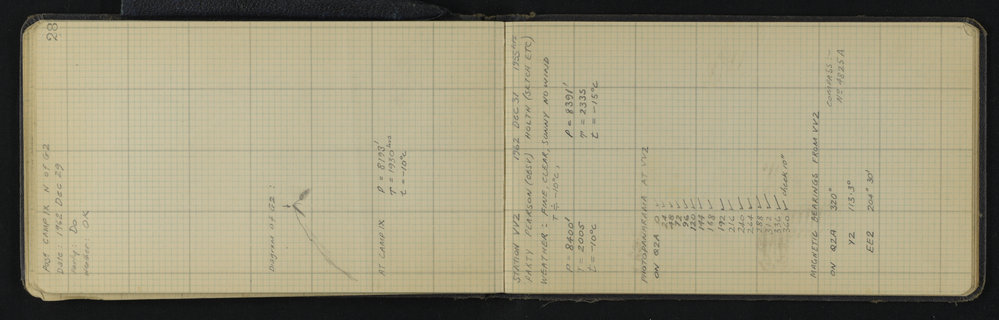 28
POS: CAMP IX N OF G2
Date: 1962 DEC 29
Party: Do
Weather: OK
Diagram of G2:
AT CAMP IX P = 8193'
T = 1930 hrs
t = -10°C
STATION VV2 1962 DEC 31 1955 hrs
PARTY PEARSON (OBSV) HOLTH (SKTCH ETC)
WEATHER: FINE, CLEAR, SUNNY NO WIND
T ÷ -10°C,
P = 8400' P = 8391'
T = 2005 T = 2335
t = -10°C t = -15°C
PHOTOPANORAMA AT VV2
ON Q2A 0
24
48
72
96
120
144
168
192
216
240
264
288
312
336
360 check 10"
MAGNETIC BEARINGS FROM VV2 COMPASS -
ON Q2A 320° No 4825A
Y2 113.3°
EE2 204° 30'